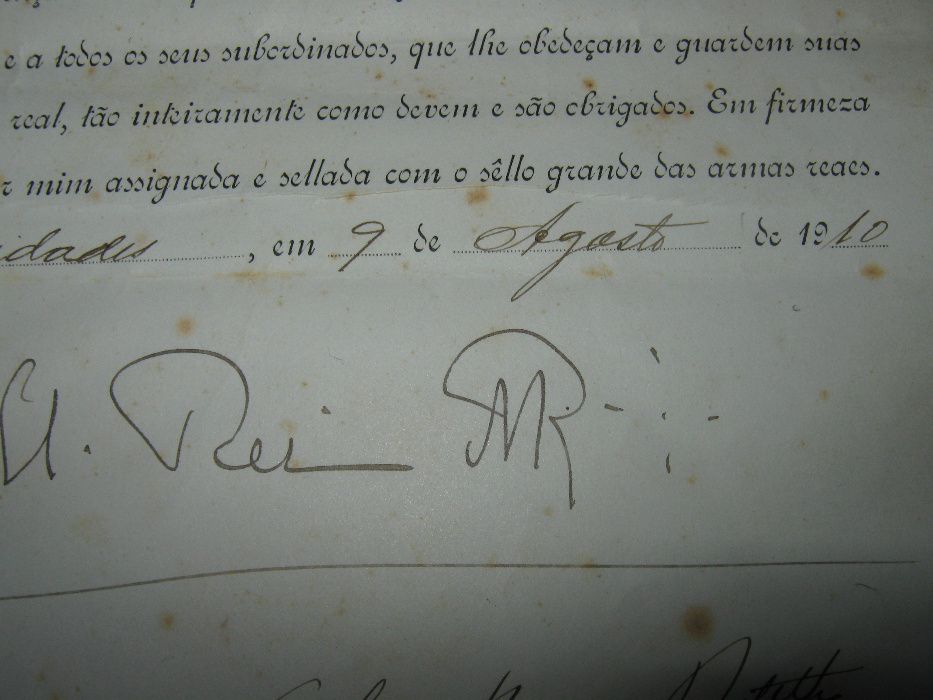 e a todos os seus subordinados, que lhe obedeçam e guardem suas
real, tão inteiramente como devem e são obrigados. Em firmeza
mim assignada e sellada com o sêllo grande das armas reaes.
idades, em 9 de Agosto de 1910
El. Rei